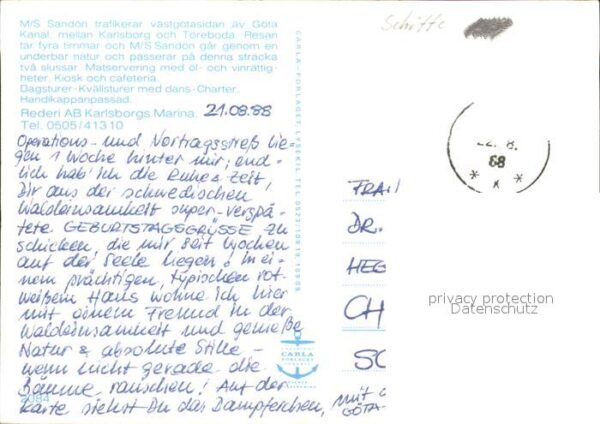 Schiffe
M/S Sandön trafikerar västgötasidan av Göta
Kanal, mellan Karlsborg och Töreboda. Resan
tar fyra timmar och M/S Sandön går genom en
underbar natur och passerar på denna sträcka
två slussar. Matservering med öl- och vinrättig-
heter. Kiosk och cafeteria.
Dagsturer-Kvällsturer med dans-Charter.
Handikappanpassad.
Rederi AB Karlsborgs Marina.
Tel. 0505/41310
21.08.88
Operations- und Vortragsstreß lie-
gen 1 Woche hinter mir; end-
lich hab' ich die Ruhe & Zeit,
Dir aus der schwedischen
Waldeinsamheit super-verspä-
tete GEBURTSTAGSGRÜSSE zu
schicken, die mir seit Wochen
auf der Seele liegen! In ei-
nem prächtigen, typischen rot-
weißem Haus wohne ich hier
mit einem Freund in der
Waldeinsamheit und genieße
Natur & absolute Stille –
wenn nicht gerade die
Bäume rauschen! Auf der
Karte siehst Du das Dampferchen, mit
GÖTA-
2094
CARLA-FÖRLAGET, LYSEKIL, TEL.
CARLA
FÖRLAGET
FRAU
DR.
HEG
CH
SC
22. 8.
88
privacy protection
Datenschutz